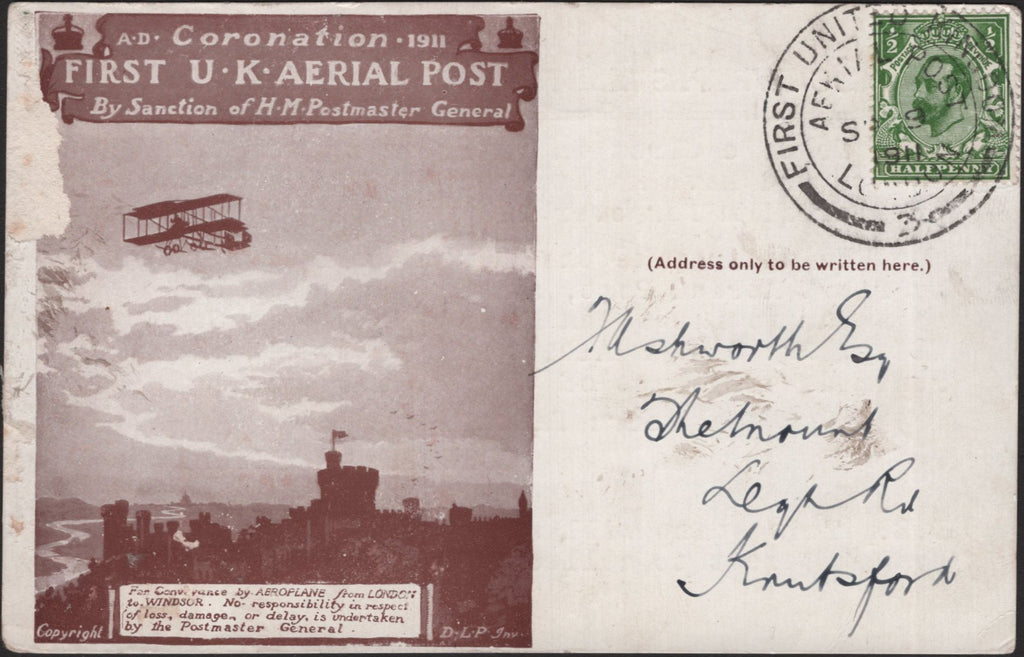 A·D· Coronation · 1911
FIRST U·K·AERIAL POST
By Sanction of H·M·Postmaster General
For Conveyance by AEROPLANE from LONDON
to WINDSOR. No responsibility in respect
of loss, damage, or delay, is undertaken
by the Postmaster General.
Copyright
D·L·P· Inv.
FIRST UNITED
AERIAL POST
9
1911
LONDON
3
POSTAGE
½
½
HALFPENNY
(Address only to be written here.)
Ashworth Esq
Legh Rd
Knutsford